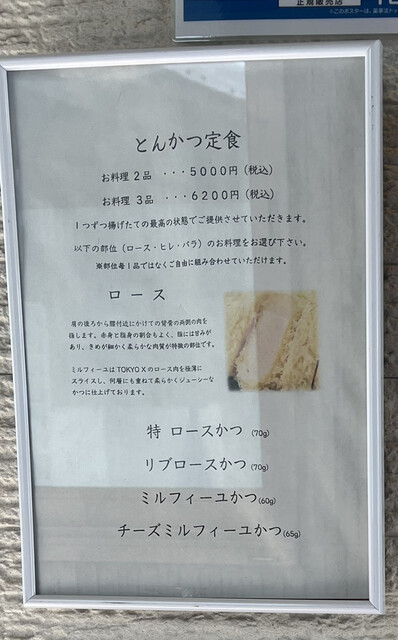 正規販売店
とんかつ定食
お料理 2品 ・・・5000円 (税込)
お料理 3品 ・・・6200円 (税込)
1つずつ揚げたての最高の状態でご提供させていただきます。
以下の部位（ロース・ヒレ・バラ）のお料理をお選び下さい。
※部位毎1品ではなくご自由に組み合わせていただけます。
ロース
肩の後ろから腰付近にかけての背骨の両側の肉を
指します。赤身と脂身の割合もよく、脂には甘みが
あり、きめが細かく柔らかな肉質が特徴の部位です。
ミルフィーユはTOKYO Xのロース肉を極薄に
スライスし、何層にも重ねて柔らかくジューシーな
かつに仕上げております。
特 ロースかつ (70g)
リブロースかつ (70g)
ミルフィーユかつ(60g)
チーズミルフィーユかつ(65g)